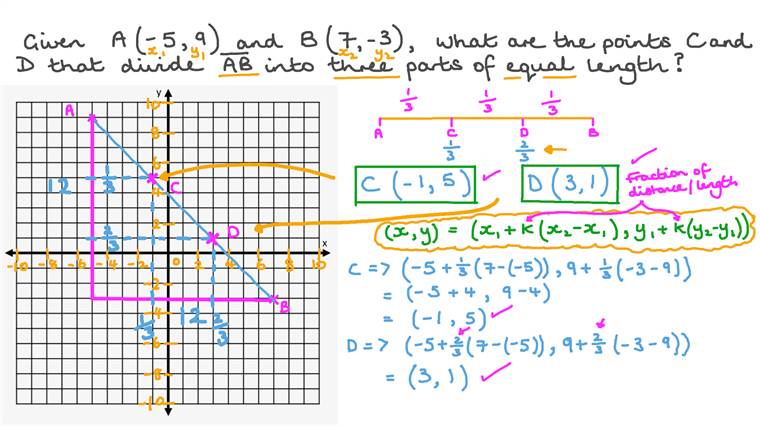 Given A(-5, 9) and B(7, -3), what are the points C and
x₁ y₁ x₂ y₂
D that divide AB into three parts of equal length?
1/3 1/3 1/3
A C D B
1/3 2/3
C(-1, 5) D(3, 1)
Fraction of
distance/length
(x, y) = (x₁ + k(x₂-x₁), y₁ + k(y₂-y₁))
C => (-5 + 1/3(7-(-5)), 9 + 1/3(-3-9))
= (-5+4, 9-4)
= (-1, 5)
D => (-5 + 2/3(7-(-5)), 9 + 2/3(-3-9))
= (3, 1)
y
10
A
8
6
12 1/3
C
4
2
2/3
D
x
-10 -8 -6 -4 -2 0 2 4 6 8 10
-2
B
-4
1/3 12 2/3
-6
-8
-10